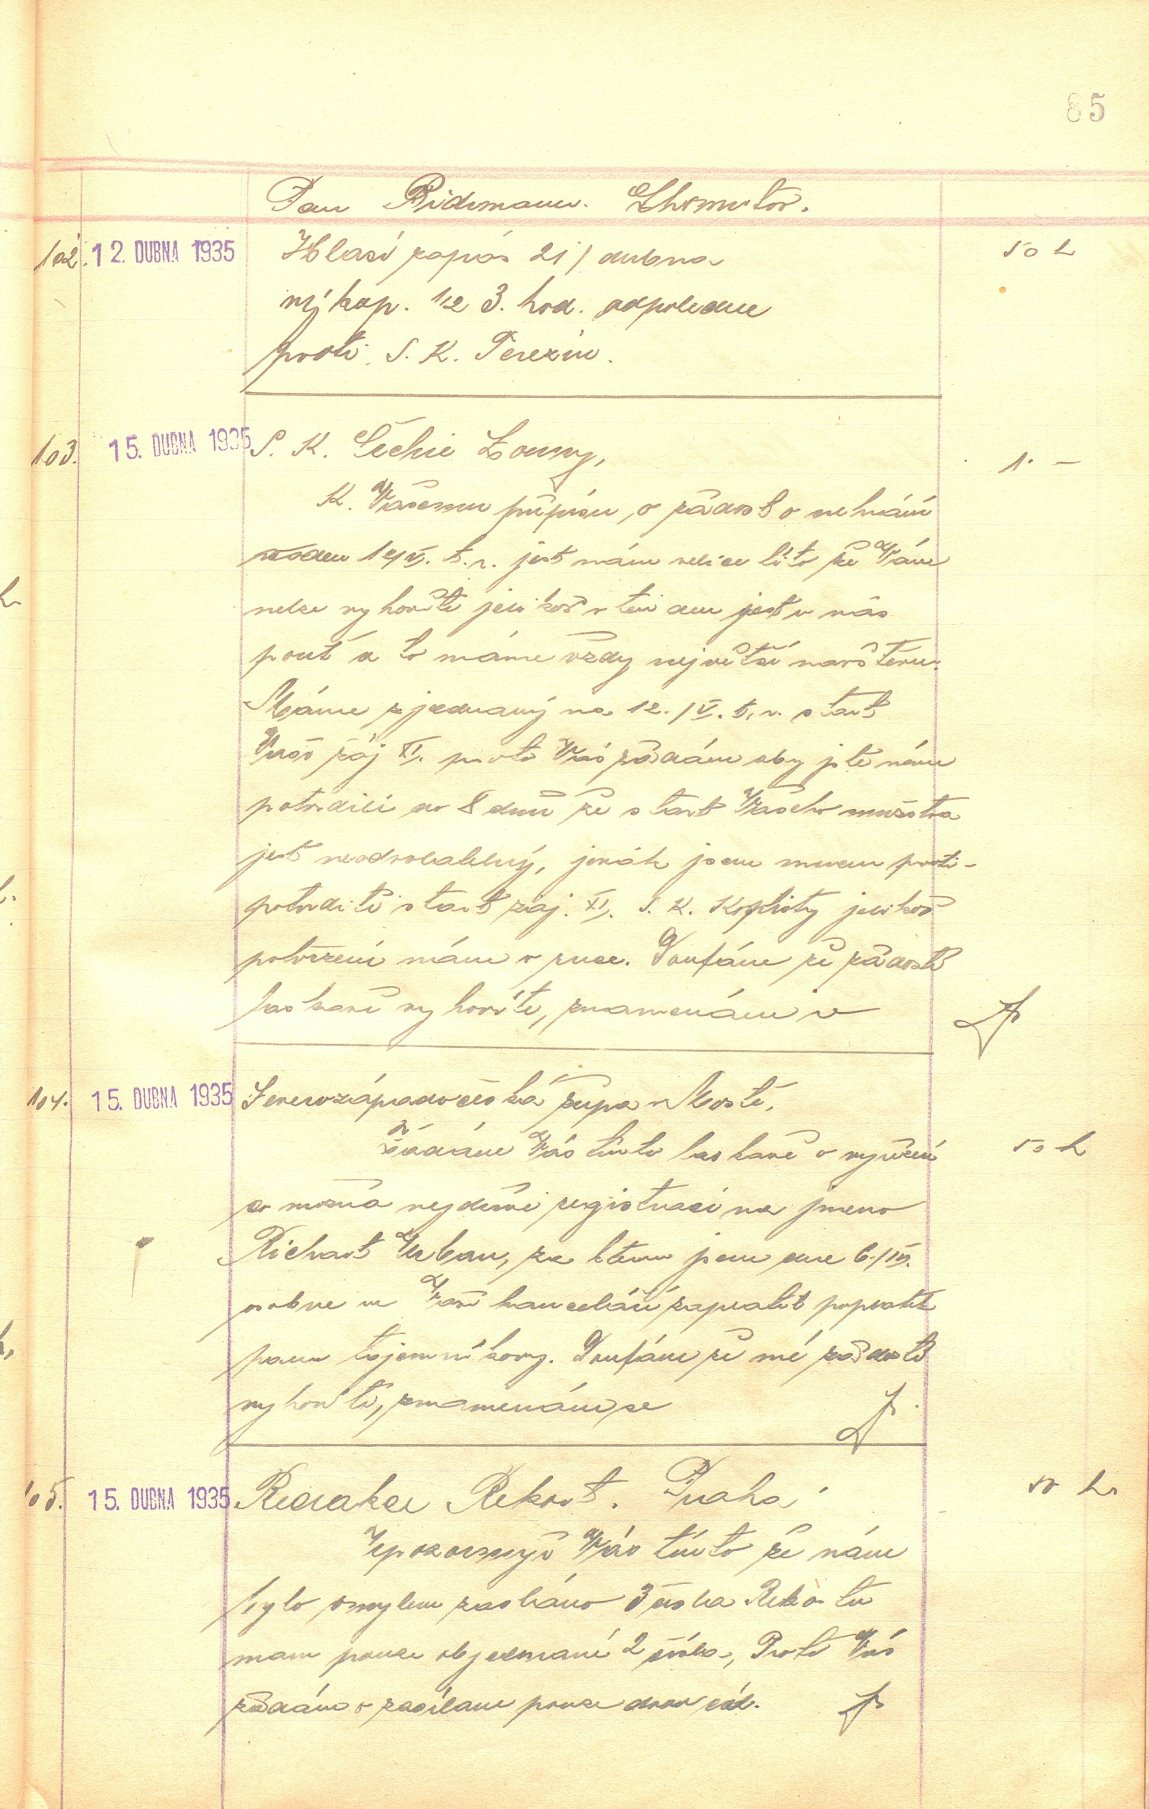 85
Pan Ridemann. Chomutov.
102. 12. DUBNA 1935 Hlasí zápas 21/ dubna 50 h
výkop. 1/2 3. hod. odpoledne
proti S. K. Terezín.
103. 15. DUBNA 1935 S. K. Čechie Louny, 1. –
K. Vašemu přípisu, o žádost o nehrání
t. r. jest nám velice líto že Vám
nelze vyhověti jelikož v ten den jest u nás
pouť a to máme vždy největší návštěvu.
Máme zjednaný na 12./V. t. r. start
Vaší záj XI. proto Vás žádám aby jste nám
potvrdili do 8 dnů že start Vašeho mužstva
jest neodvolatelný, jinák jsem nucen proti-
potvrditi start záj. XI. S. K. Kopisty jelikož
potvrzení mám v ruce. Doufám že žádosti
laskavě vyhovíte, znamenám se
104. 15. DUBNA 1935 Severozápadočeská župa v Mostě.
Žádám Vás tímto laskavě o vyřízení 50 h
co možná nejdříve registraci na jmeno
Richart Urban, za kterou jsem dne 6./IV.
osobne ve Vaší kanceláři zaplatil poplatek
panu tajemníkovy. Doufám že mé žádosti
vyhovíte, znamenám se
105. 15. DUBNA 1935 Redakce Rekort. Praha 50 h.
Upozorňuji Vás tímto že nám
bylo omylem zasláno 3 čísla Rekortu
mam pouze objednané 2 čísla, Proto Vás
žádám o zasílaní pouze dvou čís.